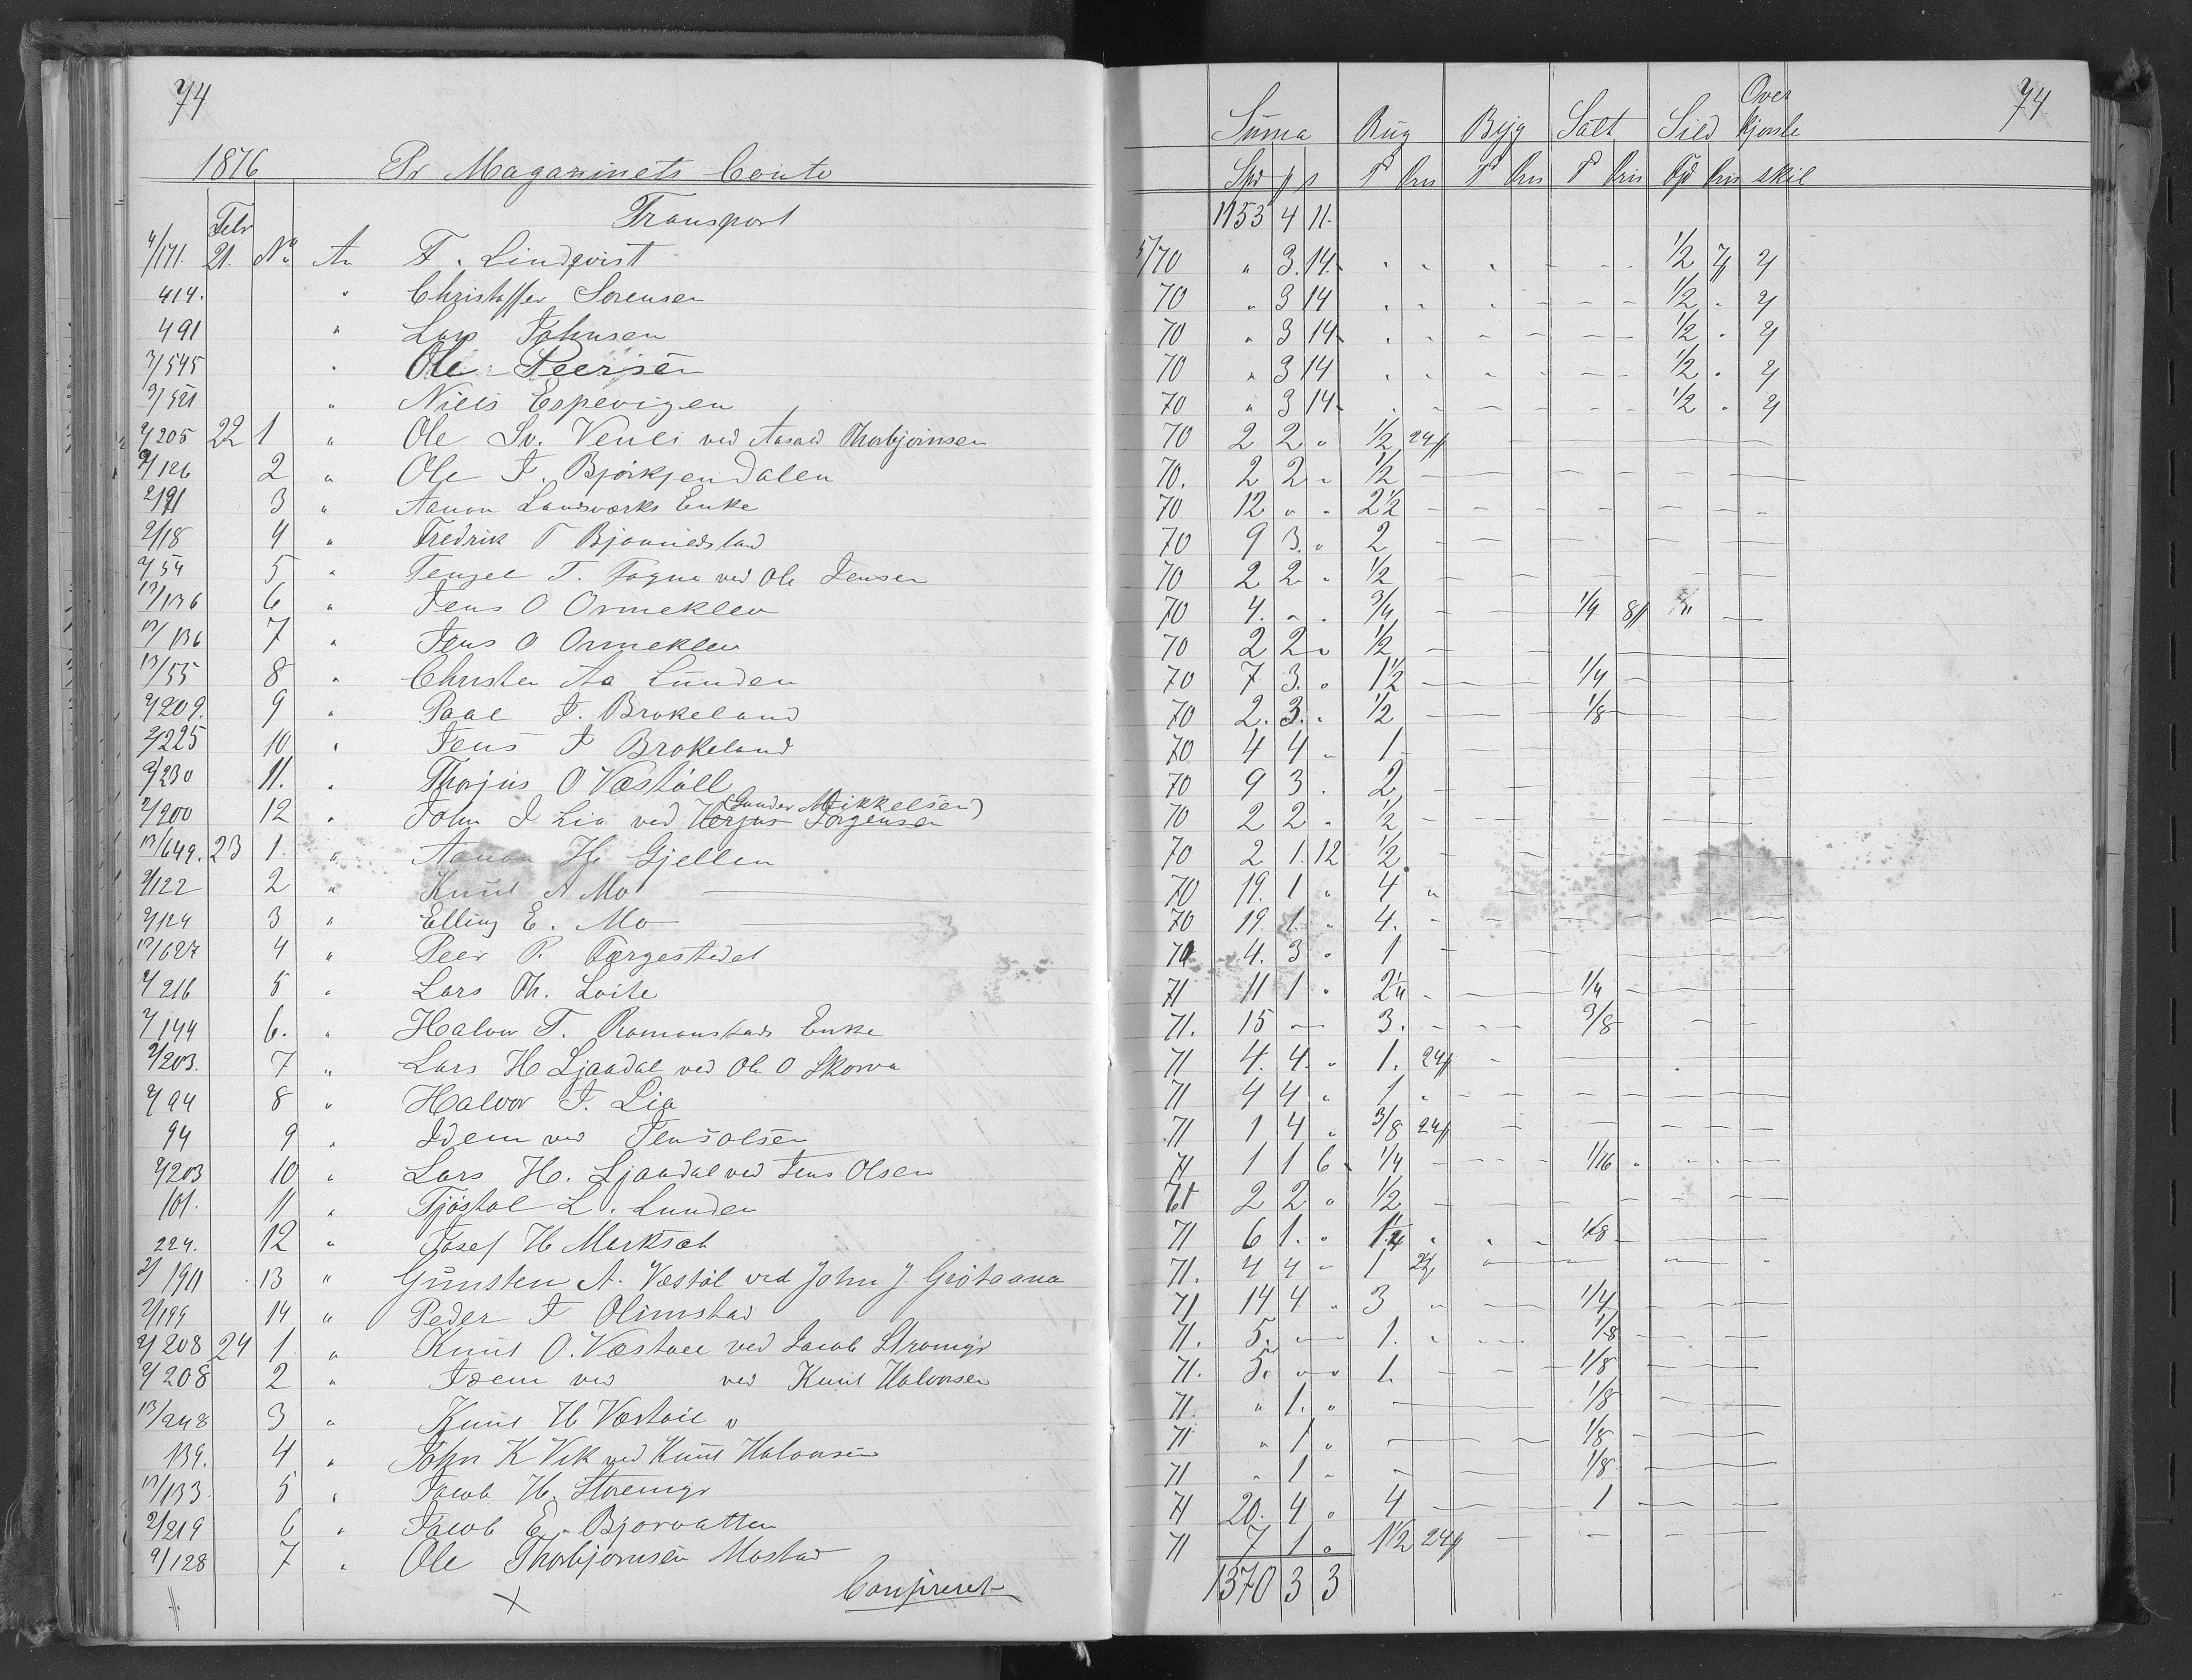 74
1876 Pr Magazinets Conto
Suma Rug Byg Salt Sild Over kjørsle 74
Spd p s Td Pris Td Pris Td Pris Td Pris skil
Febr Transport 1153 4 11.
4/171. 21. No An F. Lindqvist 5/70 " 3. 14. 1/2 7 4
414. " Christoffer Sorensen 70 " 3 14 1/2 " 4
491 " Lars Johnsen 70 " 3 14 1/2 " 4
3/545 " Ole Peersen 70 " 3 14 1/2 " 4
3/521 " Niels Espevigen 70 " 3 14 1/2 " 4
2/205 22 1 " Ole Sv. Venli ved Thorbjørnsen 70 2 2 " 1/2 24
2/126 2 " Ole J. Bjorkjendalen 70. 2 2 " 1/2
2/91 3 " Aanon Landsværks Enke 70 12 " " 2 1/2
2/18 4 " Fredrik T 70 9 3. " 2
2/54 5 " T. Fogne ved Ole Jensen 70 2 2 " 1/2
13/136 6 " Jens O Ormeklev 70 4. " " 3/4 1/4 8
13/136 7 " Jens O Ormeklev 70 2 2 " 1/2
13/55 8 " Christen Aa Lunden 70 7 3. " 1 1/2 1/4
2/209. 9 " Paal J. Brokeland 70 2. 3. " 1/2 1/8
2/225 10 " Jens J Brokeland 70 4 4 " 1
2/230 11. " Thorjus O Væstöll 70 9 3 . 2
2/200 12 " John J Lia ved Jörgensen (Gunder Mikkelsen) 70 2 2 " 1/2
13/649. 23 1. " Aanon H. Gjellen 70 2 1. 12 1/2
2/122 2 " Knut A Mo 70 19. 1 " 4 "
2/124 3 " Elling E. Mo 70 19. 1. " 4.
13/627 4 " Peer P. Færgestedet 71 4. 3 " 1
2/216 5 " Lars Th. Loite 71 11 1 " 2 1/4 1/4
2/144 6. " Halvor T. Romonstads Enke 71. 15 3. 3/8
2/203. 7 " Lars H Ljaadal ved Ole O Skorva 71 4. 4. " 1. 24
2/94 8 " Halvor J. Lia 71 4 4 " 1
94 9 " Idem ved Jens Olsen 71 1 4 " 3/8 24
2/203 10 " Lars H. Ljaadal ved Jens Olsen 71 1 1 6 1/4 1/16
101. 11 " Tjöstol L. Lunden 71 2 2 " 1/2
224. 12 " Josef H Mørksæt 71 6 1. " 1 1/4 1/8
2/191 13 " Günsten A. Væstöl ved John J. Grötaana 71. 4 4 " 1 24
2/199 14 " Peder J Olimstad 71 14 4 " 3 1/4
2/208 24 1. " Knut O. Væstöll ved Jacob Stromgr 71. 5. 1. 1/8
2/208 2 " Idem ved ved Knut Halvorsen 71. 5. 1. 1/8
13/248 3 " Knut H Væstöll " 71. " 1. " 1/8
139. 4 " John K Vik ved Knut Halvorsen 71 " 1 " 1/8
13/133 5 " Jacob H. 71 " 1 " 1/8
2/219 6 " Jacob E. Bjorvatten 71 20. 4 " 4 1
2/128 7 " Ole Thorbjørnsen Mostad 71 7 1 " 1 1/2 24
Confereret 1370 3 3